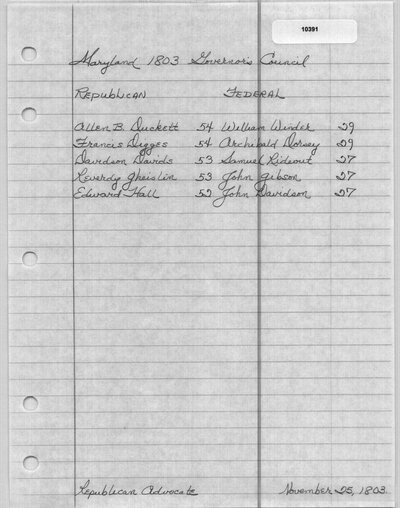 10391
Maryland 1803 Governor's Council
Republican Federal
Allen B. Duckett 54 William Winder 29
Francis Digges 54 Archibald Dorsey 29
Davidson Davids 53 Samuel Rideout 27
Reverdy Gheislin 53 John Gibson 27
Edward Hall 52 John Davidson 27
Republican Advocate November 25, 1803.